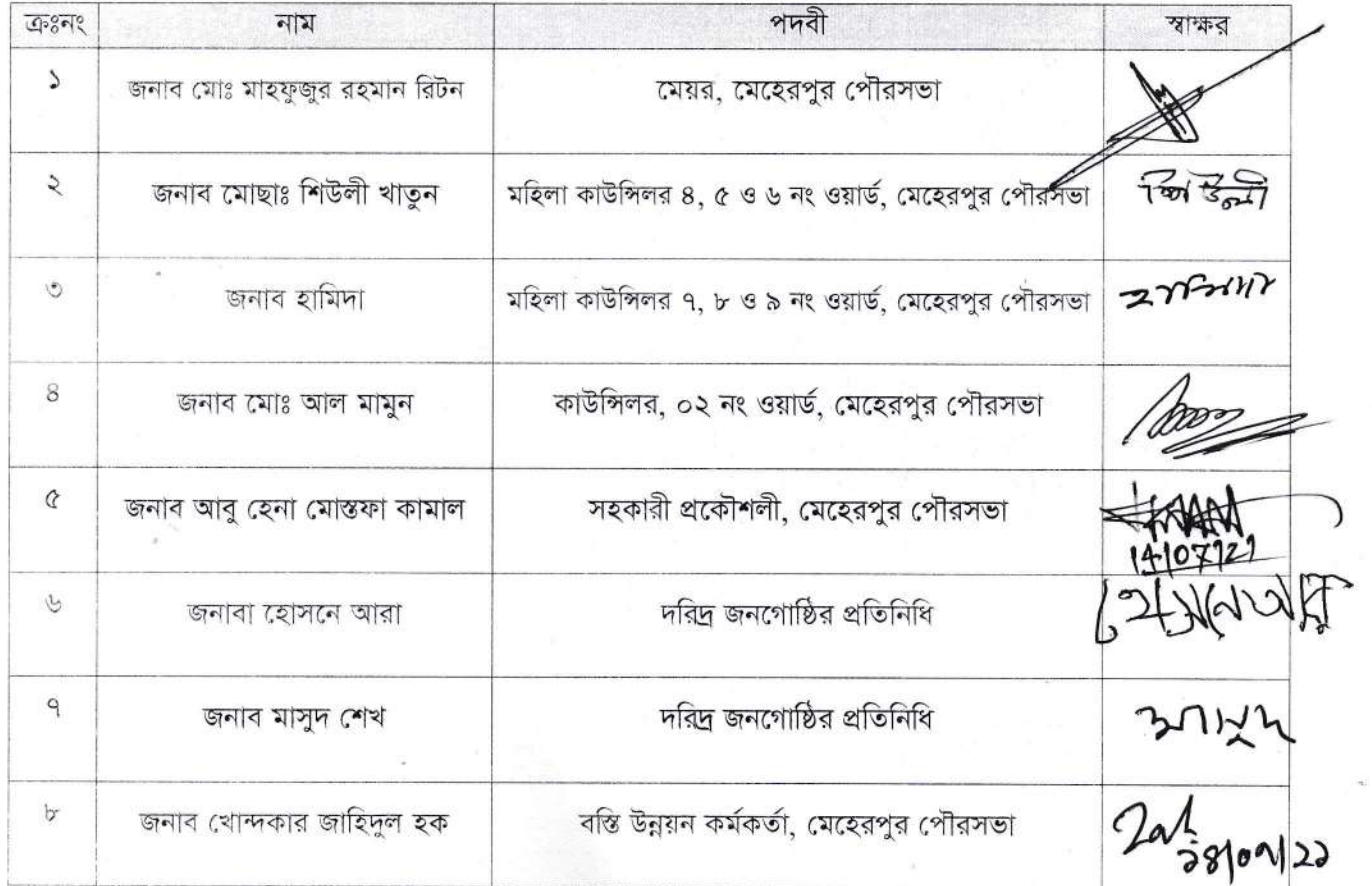 ক্রঃনং নাম পদবী স্বাক্ষর
১ জনাব মোঃ মাহফুজুর রহমান রিটন মেয়র, মেহেরপুর পৌরসভা
২ জনাব মোছাঃ শিউলী খাতুন মহিলা কাউন্সিলর ৪, ৫ ও ৬ নং ওয়ার্ড, মেহেরপুর পৌরসভা শিউলী
৩ জনাব হামিদা মহিলা কাউন্সিলর ৭, ৮ ও ৯ নং ওয়ার্ড, মেহেরপুর পৌরসভা হামিদা
৪ জনাব মোঃ আল মামুন কাউন্সিলর, ০২ নং ওয়ার্ড, মেহেরপুর পৌরসভা
৫ জনাব আবু হেনা মোস্তফা কামাল সহকারী প্রকৌশলী, মেহেরপুর পৌরসভা
14/07/21
৬ জনাবা হোসনে আরা দরিদ্র জনগোষ্ঠির প্রতিনিধি হোসনেআরা
৭ জনাব মাসুদ শেখ দরিদ্র জনগোষ্ঠির প্রতিনিধি মাসুদ
৮ জনাব খোন্দকার জাহিদুল হক বস্তি উন্নয়ন কর্মকর্তা, মেহেরপুর পৌরসভা
১৪/০৭/২১